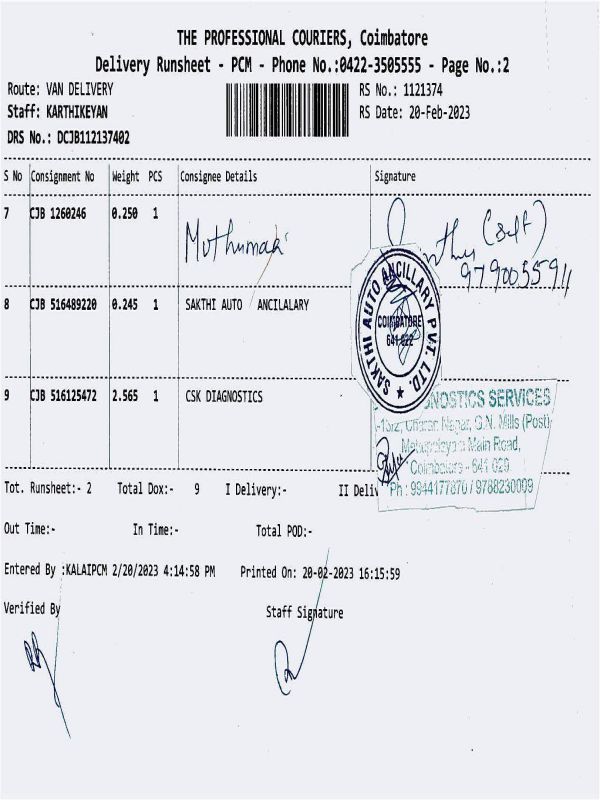 THE PROFESSIONAL COURIERS, Coimbatore
Delivery Runsheet - PCM - Phone No.:0422-3505555 - Page No.:2
Route: VAN DELIVERY
RS No.: 1121374
Staff: KARTHIKEYAN
RS Date: 20-Feb-2023
DRS No.: DCJB112137402
S No Consignment No Weight PCS Consignee Details Signature
7 CJB 1260246 0.250 1
(Self)
9790055911
8 CJB 516489220 0.245 1 SAKTHI AUTO ANCILALARY
SAKTHI AUTO ANCILLARY PVT. LTD.
COIMBATORE
641 022
9 CJB 516125472 2.565 1 CSK DIAGNOSTICS
NOSTICS SERVICES
Nagar, G.N. Mills (Post)
Main Road,
Coimbatore - 641 029
Ph : 9944177870 / 9788230009
Tot. Runsheet:- 2 Total Dox:- 9 I Delivery:- II Deliv
Out Time:- In Time:- Total POD:-
Entered By :KALAIPCM 2/20/2023 4:14:58 PM Printed On: 20-02-2023 16:15:59
Verified By Staff Signature